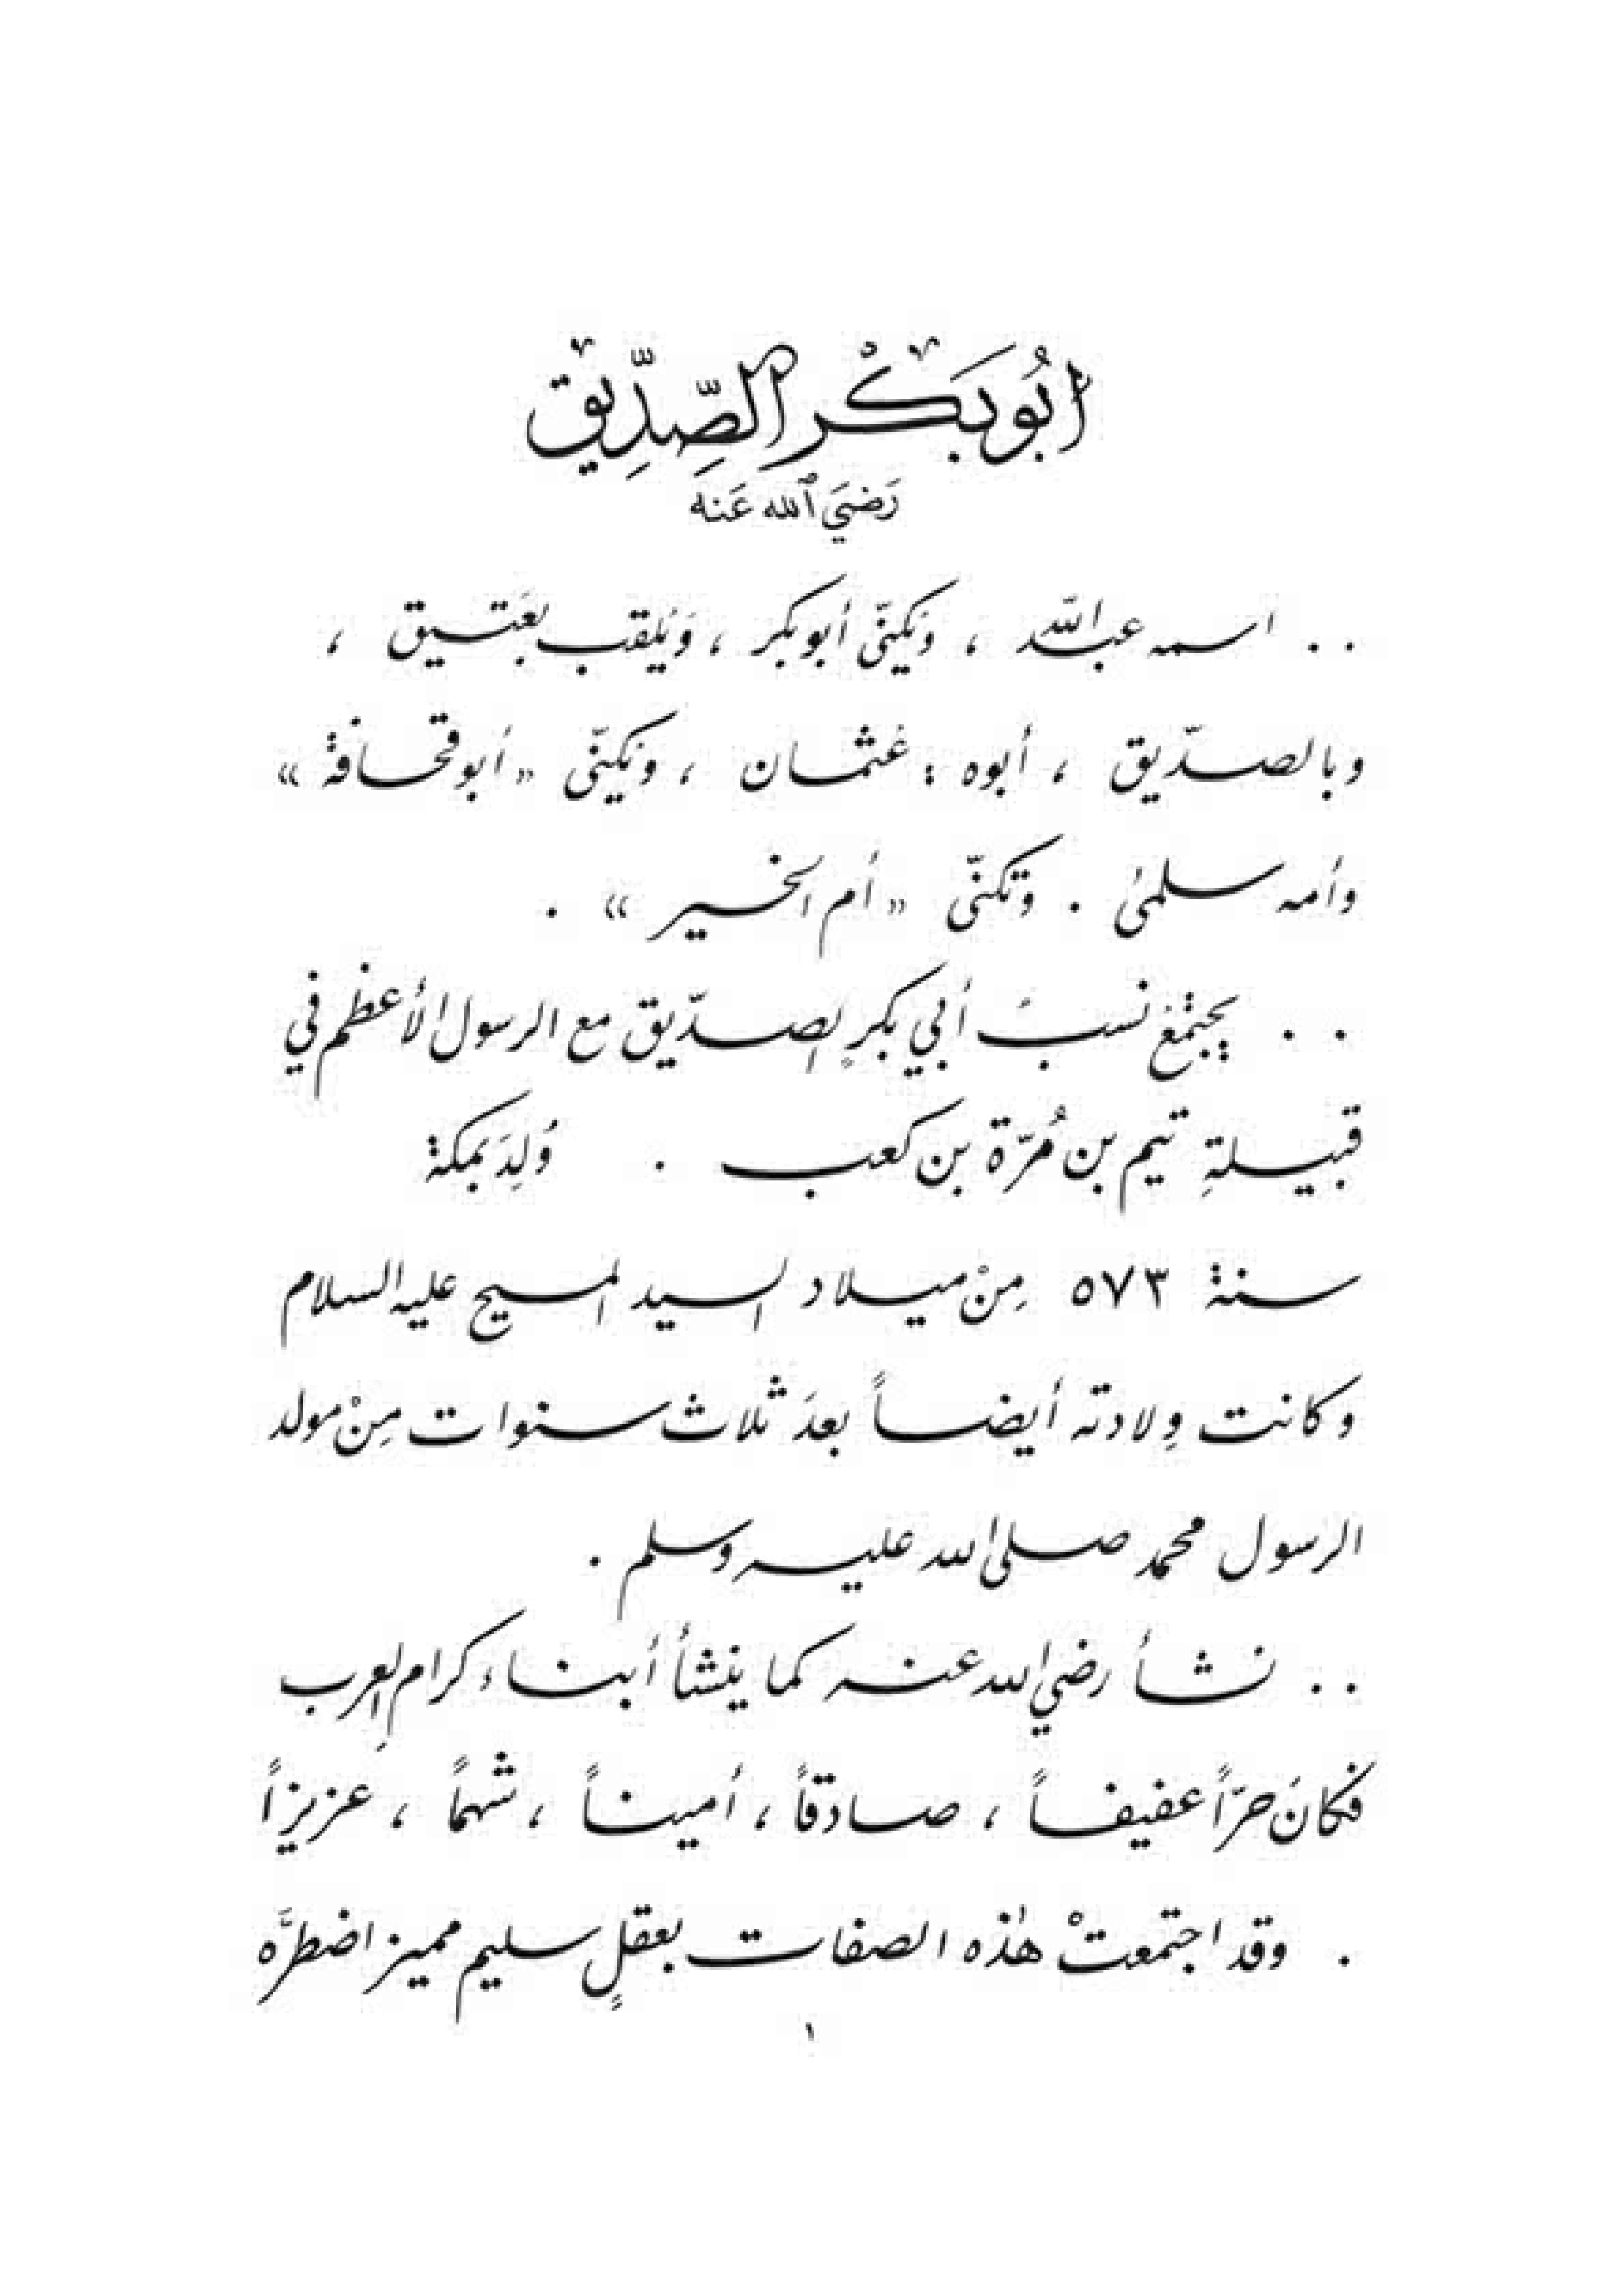 أَبُو بَكْر الصِّدِّيق
رَضيَ ٱلله عَنه
. . اسمه عبد الله ، ويُكنّى أبو بكر ، وَيُلقب بعَتيق ،
وبالصدّيق ، أبوه : عُثمان ، ويُكنّى « أبو قحافة »
وأمه سلمىٰ . وتكنّى « أم الخير » .
. . يجتمعُ نسبُ أبي بكرٍ الصدّيق مع الرسول الأعظم في
قبيلةِ تيم بن مُرّة بن كعب . وُلِدَ بمَكة
سنة ٥٧٣ مِنْ ميلاد السيد المسيح عليه السلام
وكانت وِلادته أيضاً بعدَ ثلاث سنوات مِنْ مولد
الرسول محمد صلى الله عليه وسلم .
. . نشأ رضي الله عنه كما ينشأُ أبناء كرامِ العرب
فكانَ حرّاً عفيفاً ، صادقاً ، أميناً ، شهماً ، عزيزاً
. وقد اجتمعتْ هٰذه الصفات بعقلٍ سليم مميز اضطرَّه
١